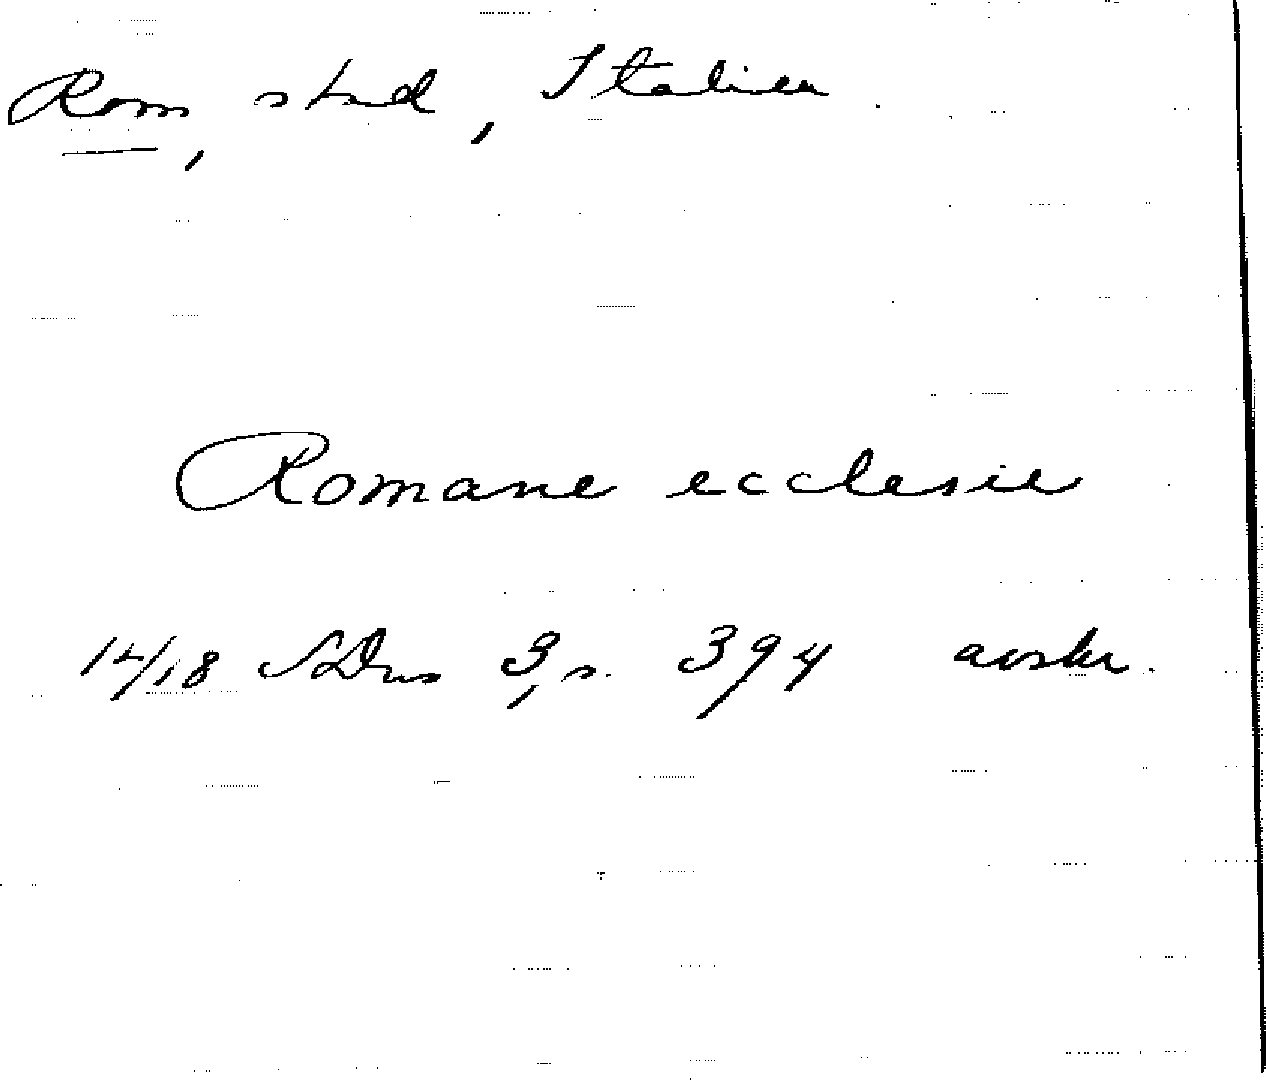 Rom, stad, Italien.
Romane ecclesie
14/18 SDns 3, s. 394 avskr.